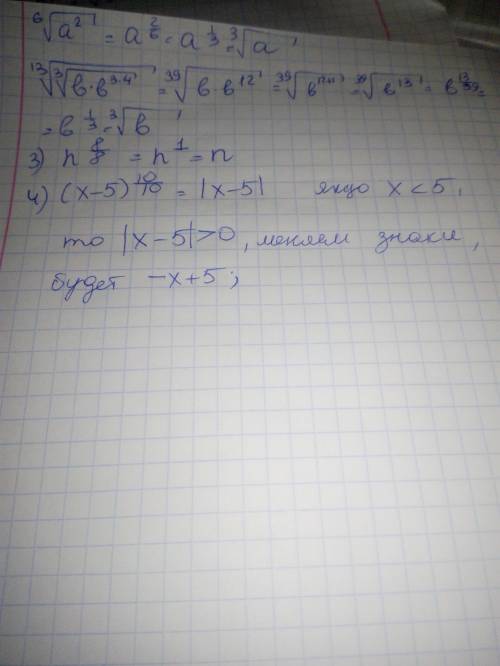 ⁶√a² = a^(2/6) = a^(1/3) = ³√a
¹³√(³√(b·b^(3·4))) = ³⁹√(b·b¹²) = ³⁹√(b^(12+1)) = ³⁹√(b¹³) = b^(13/39) =
= b^(1/3) = ³√b
3) n^(8/8) = n¹ = n
4) (x-5)^(10/10) = |x-5| якщо x < 5,
то |x-5|>0, меняем знаки,
будет -x+5;